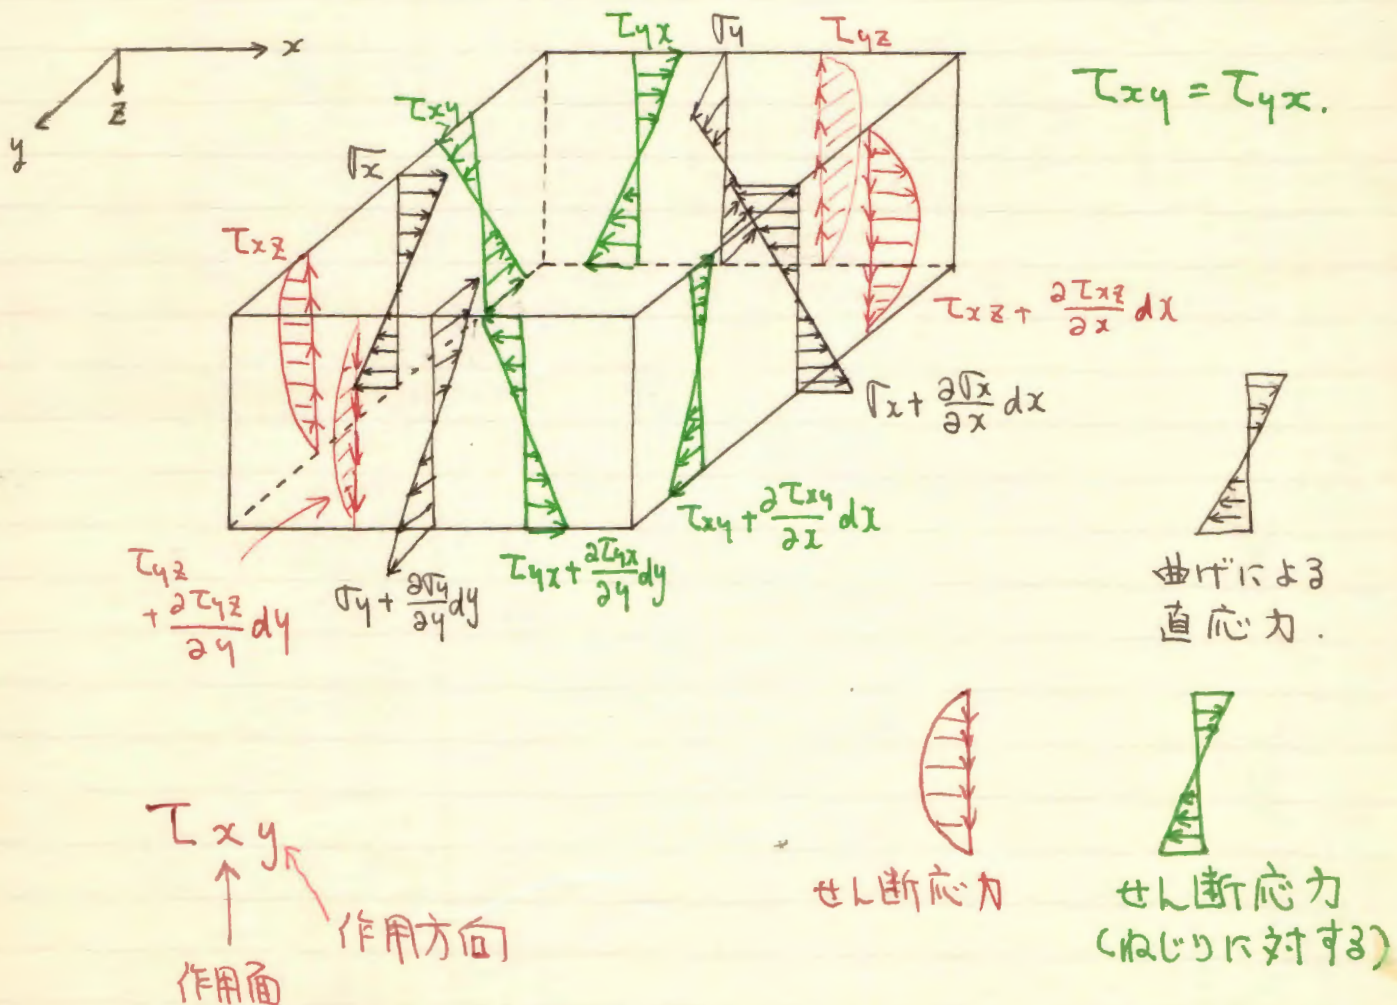 x
y
z
τyx
σy
τyz
τxy = τyx.
τxy
σx
τxz
τxz + ∂τxz/∂x dx
σx + ∂σx/∂x dx
τxy + ∂τxy/∂x dx
τyx + ∂τyx/∂y dy
σy + ∂σy/∂y dy
τyz
+ ∂τyz/∂y dy
曲げによる
直応力.
τxy
作用方向
作用面
せん断応力
せん断応力
(ねじりに対する)